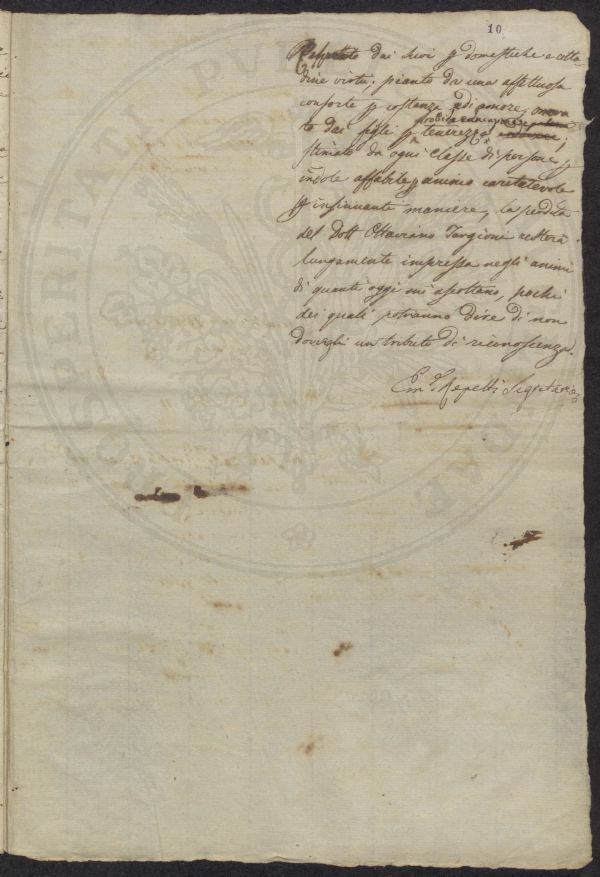 10
Rispettato dai suoi p domestiche e citta
dine virtù; pianto da una affettuosa
consorte p costanza di amore, onora
to dai figli p tenerezza
stimato da ogni classe di persone p
indole affabile, p animo caritatevole
p insinuante maniere, la perdita
del Dott Ottaviano Targioni resterà
lungamente impressa negli animi
di quanti oggi mi ascoltano, pochi
dei quali potranno dire di non
dovergli un tributo di riconoscenza.
Em.l Repetti Segretario
PROSPERITATI PUBLICAE